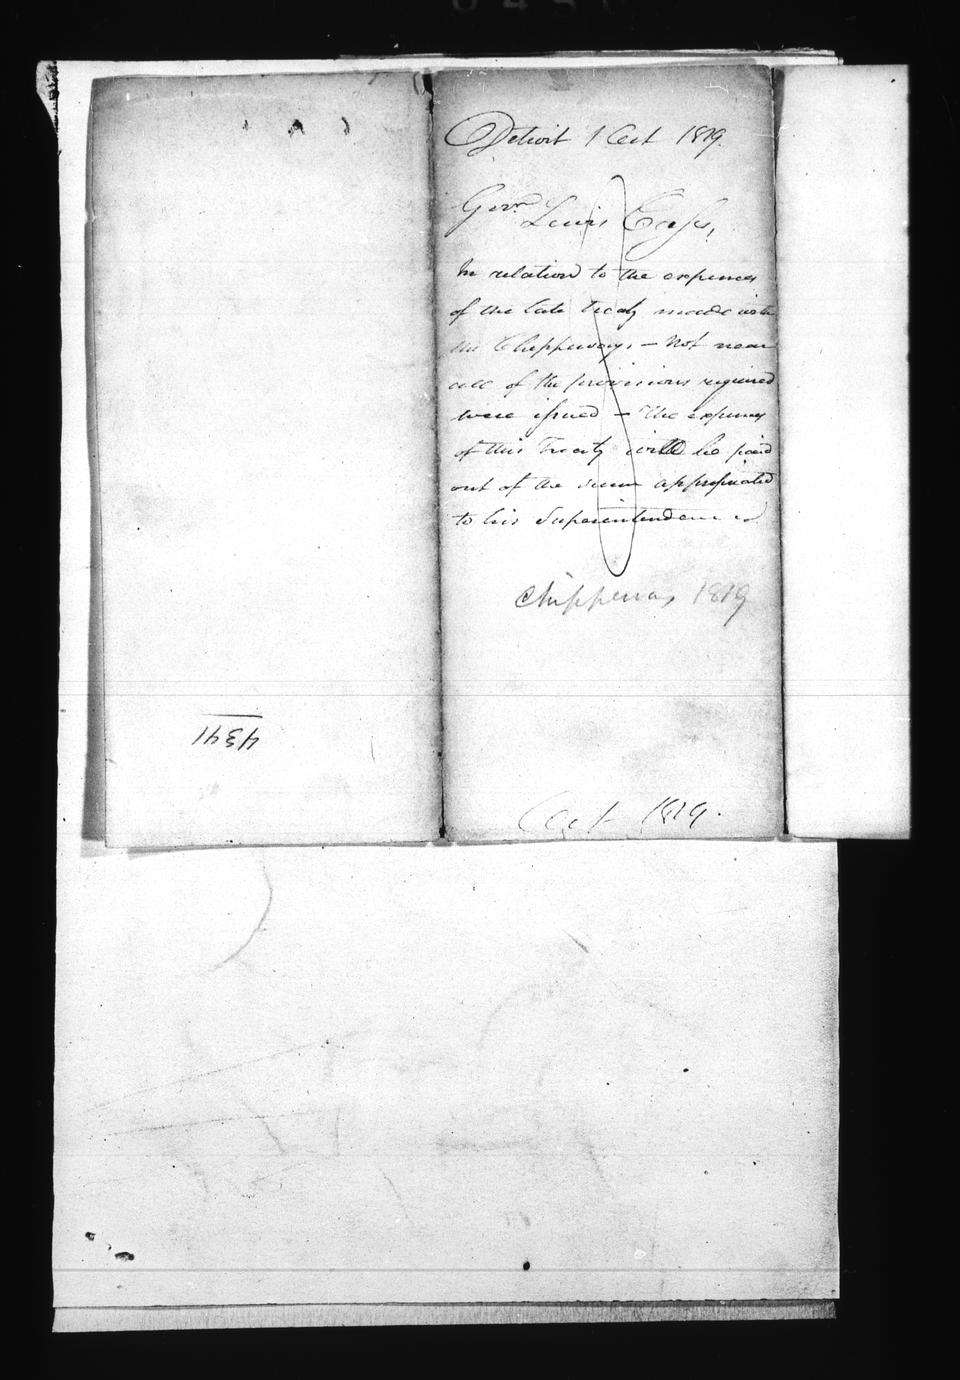 Detroit 1 Oct 1819.
Govr. Lewis Cass,
In relation to the expences
of the late treaty made with
the Chippeways, – Not near
all of the provisions required
were issued – The expenses
of this Treaty will be paid
out of the sum appropriated
to his Superintendence
Chippewas 1819
Oct 1819.
4341